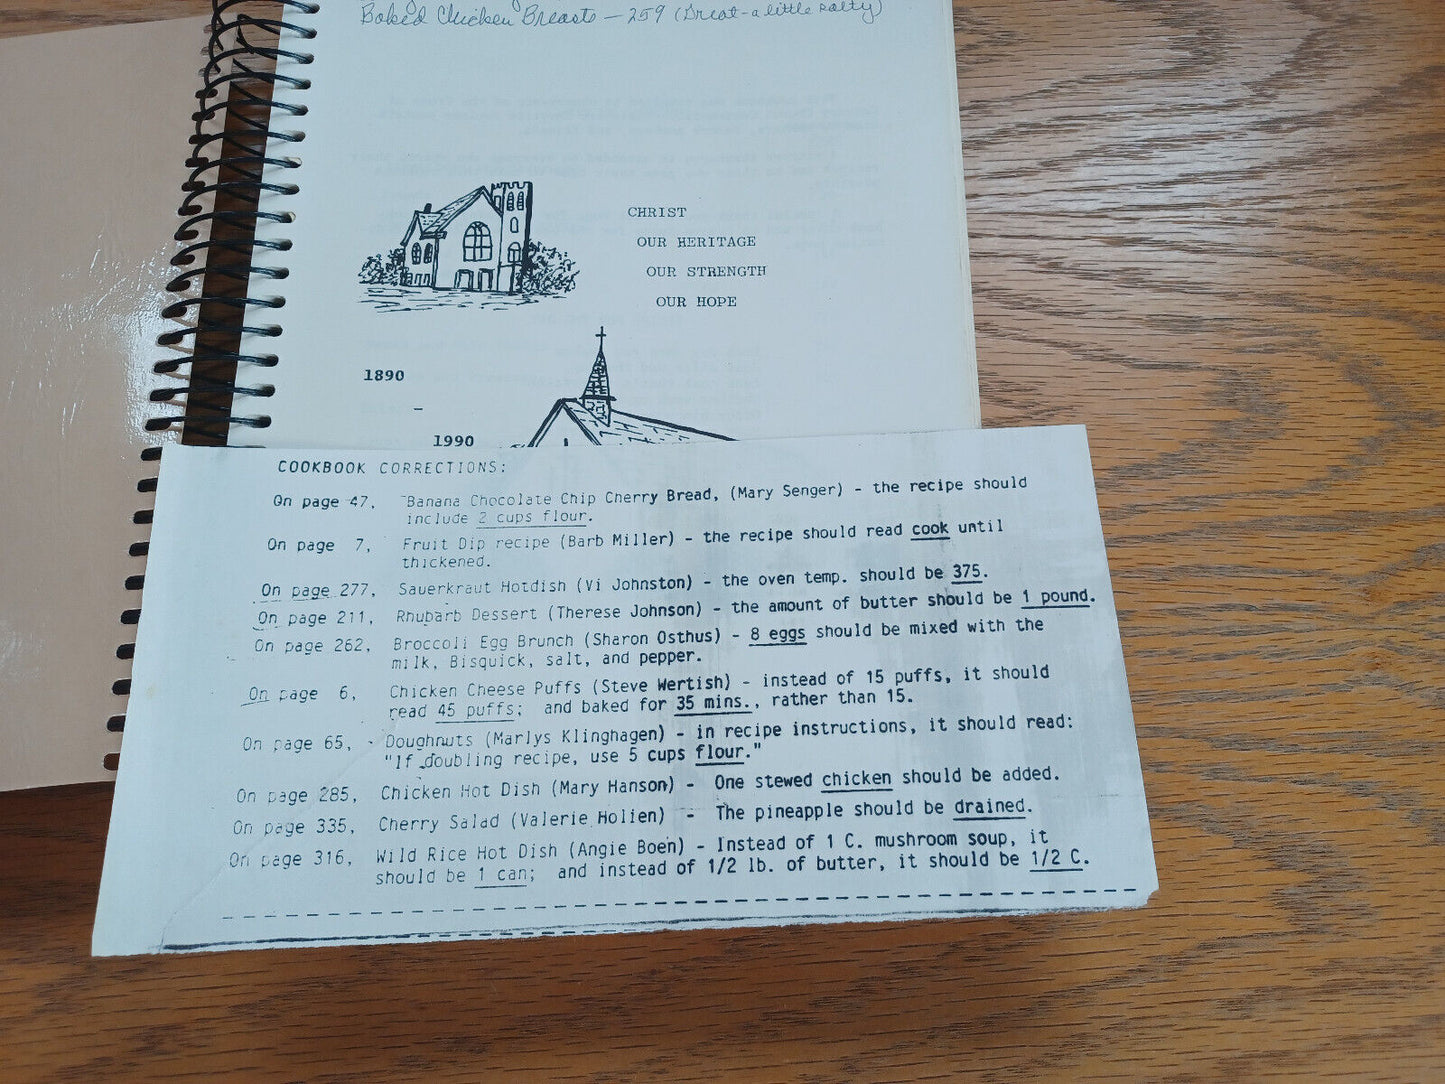 Baked Chicken Breasts - 259 (Great - a little salty)
CHRIST
OUR HERITAGE
OUR STRENGTH
OUR HOPE
1890
-
1990
COOKBOOK CORRECTIONS:
On page 47, Banana Chocolate Chip Cherry Bread, (Mary Senger) - the recipe should
include 2 cups flour.
On page 7, Fruit Dip recipe (Barb Miller) - the recipe should read cook until
thickened.
On page 277, Sauerkraut Hotdish (Vi Johnston) - the oven temp. should be 375.
On page 211, Rhubarb Dessert (Therese Johnson) - the amount of butter should be 1 pound.
On page 262, Broccoli Egg Brunch (Sharon Osthus) - 8 eggs should be mixed with the
milk, Bisquick, salt, and pepper.
On page 6, Chicken Cheese Puffs (Steve Wertish) - instead of 15 puffs, it should
read 45 puffs; and baked for 35 mins., rather than 15.
On page 65, - Doughnuts (Marlys Klinghagen) - in recipe instructions, it should read:
"If doubling recipe, use 5 cups flour."
On page 285, Chicken Hot Dish (Mary Hanson) - One stewed chicken should be added.
On page 335, Cherry Salad (Valerie Holien) - The pineapple should be drained.
On page 316, Wild Rice Hot Dish (Angie Boen) - Instead of 1 C. mushroom soup, it
should be 1 can; and instead of 1/2 lb. of butter, it should be 1/2 C.